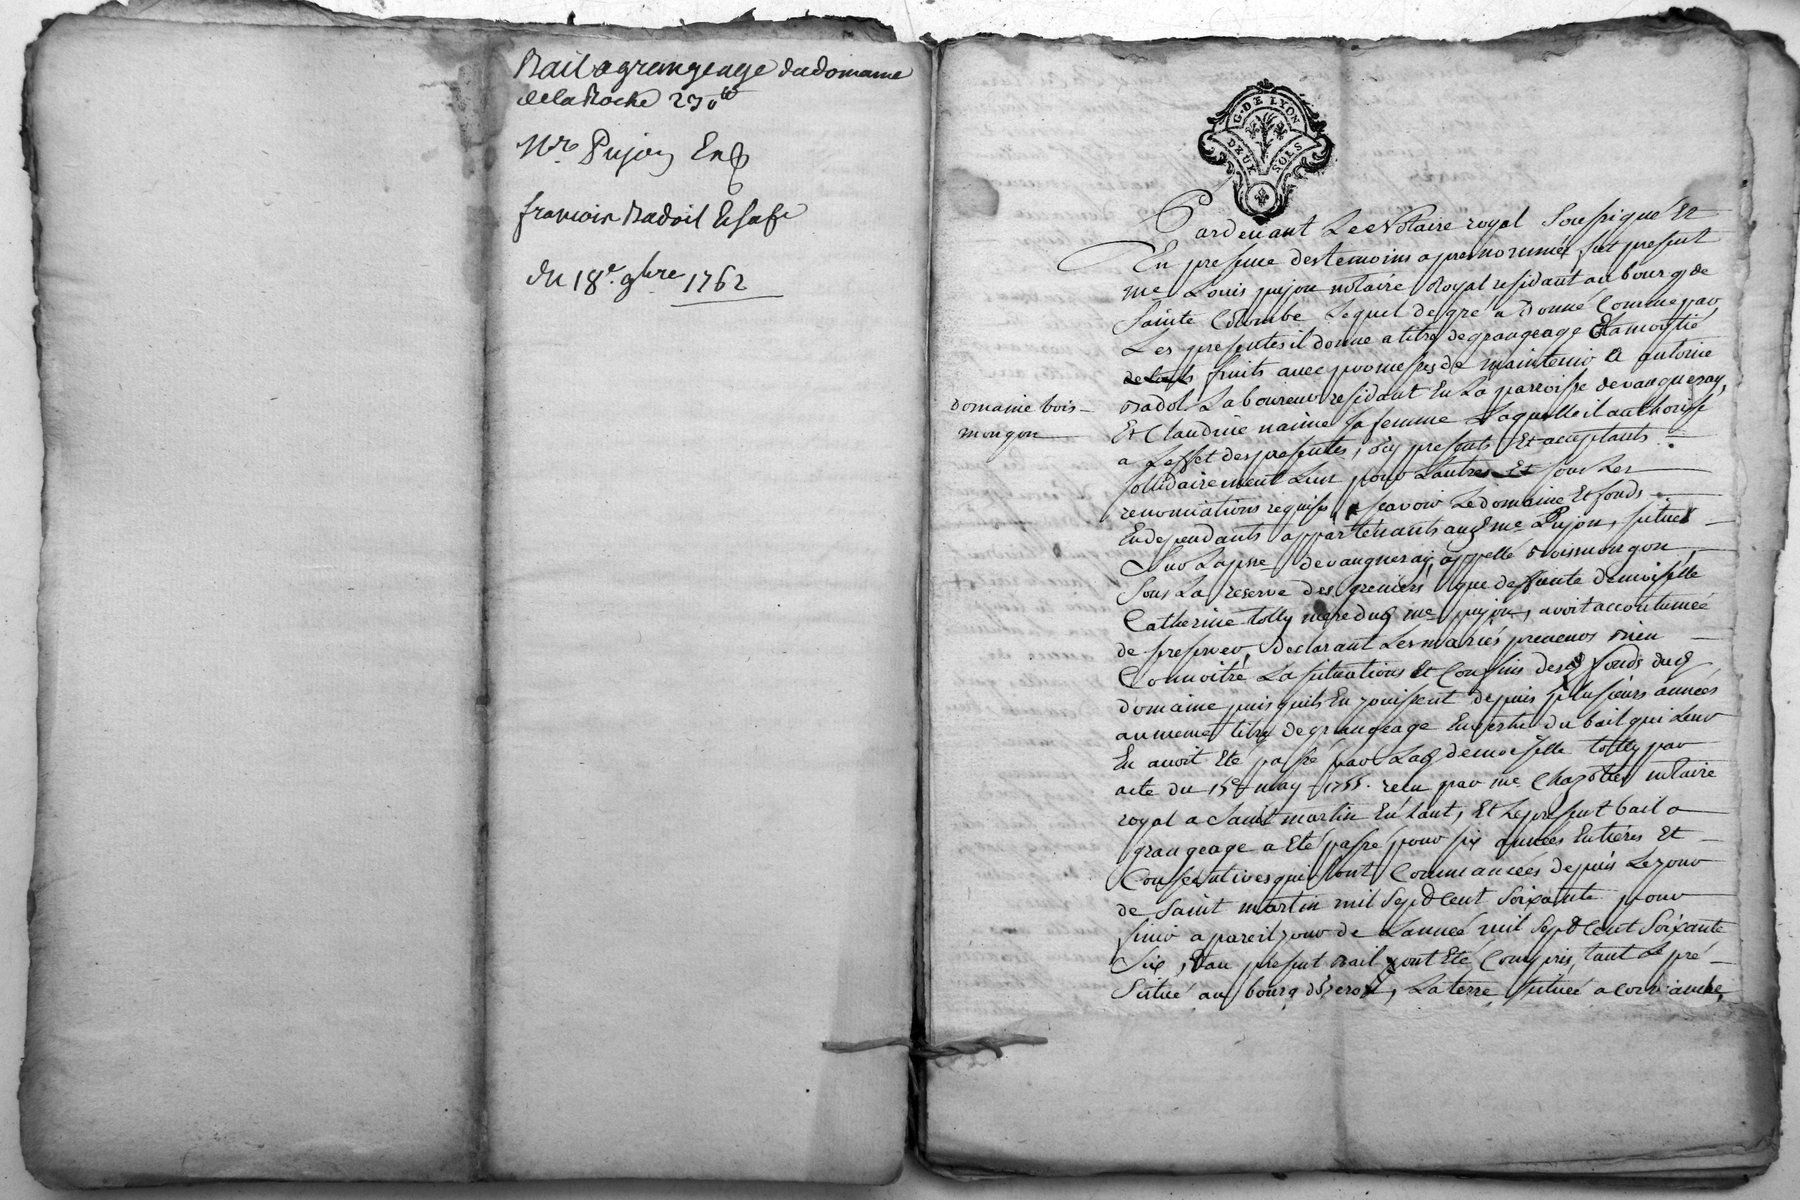 Bail a grangeage du domaine
de la Roche 230tt
Mre Pujon Enq
francois Badoil & sa fe
du 18e. 9bre 1762
G. DE LYON
DEUX SOLS
Pardevant Le Notaire royal soussigné Et
En presence des temoins apres nommés, fut present
me Louis pujon notaire Royal residant au bourg de
Sainte Colombe Lequel de gré a Donné Comme par
Les presentes il donne a titre de grangeage Et a moytié
de tous fruits avec promesses de maintenir A antoine
badol Laboureur residant En La parroisse de vaugneray,
Et Claudine naime sa femme Laquelle il authorise
a L'effet des presentes, icy presents Et acceptants
sollidairement L'un pour L'autre Et sous Les
renonciations requises, scavoir Le domaine Et fonds
En dependants appartenants audt me Pujon, situés
sur La psse de vaugneray, appellé boismongon,
Sous La reserve des greniers que deffunte demoiselle
Catherine tolly mere dud me pujon, avoit accoutumée
de se reserver, declarant Les mariés preneurs bien
Connoitre La situations Et Confins desd fonds dud
domaine puis quils En jouissent depuis plusieurs années
au meme titre de grangeage En vertu du bail qui Leur
En avoit Eté passé par Lad demoiselle tolly par
acte du 15e may 1755. recu par me Chazottier notaire
royal a Saint martin En haut, Et Le present bail a
grangeage a Eté passé pour six années Entieres Et
Consecutives qui sont Commancées depuis Le jour
de Saint martin mil sept Cent Soixante pour
finir a pareil jour de L'année mil sept Cent Soixante
Six, Et au present Bail y ont Eté Compris, tant Le pré
Situé au bourg La terre située a
domaine bois-
mongon